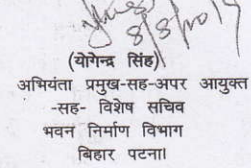 8/8/2017
(योगेन्द्र सिंह)
अभियंता प्रमुख-सह-अपर आयुक्त
-सह- विशेष सचिव
भवन निर्माण विभाग
बिहार पटना।